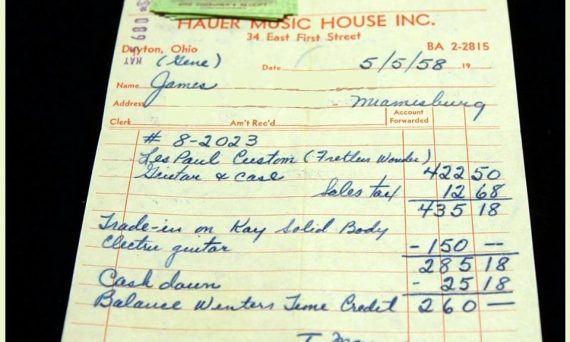 HAUER MUSIC HOUSE INC.
34 East First Street
Dayton, Ohio BA 2-2815
(Gene) Date 5/5/58 19
Name James
Address Miamesburg
Clerk Am't Rec'd Account Forwarded
# 8-2023
Les Paul Custom (Fretless Wonder)
Guitar & Case 422 50
Sales tax 12 68
435 18
Trade-in on Kay Solid Body
electric guitar - 150 —
285 18
Cash down - 25 18
Balance Winters Time Credit 260 —